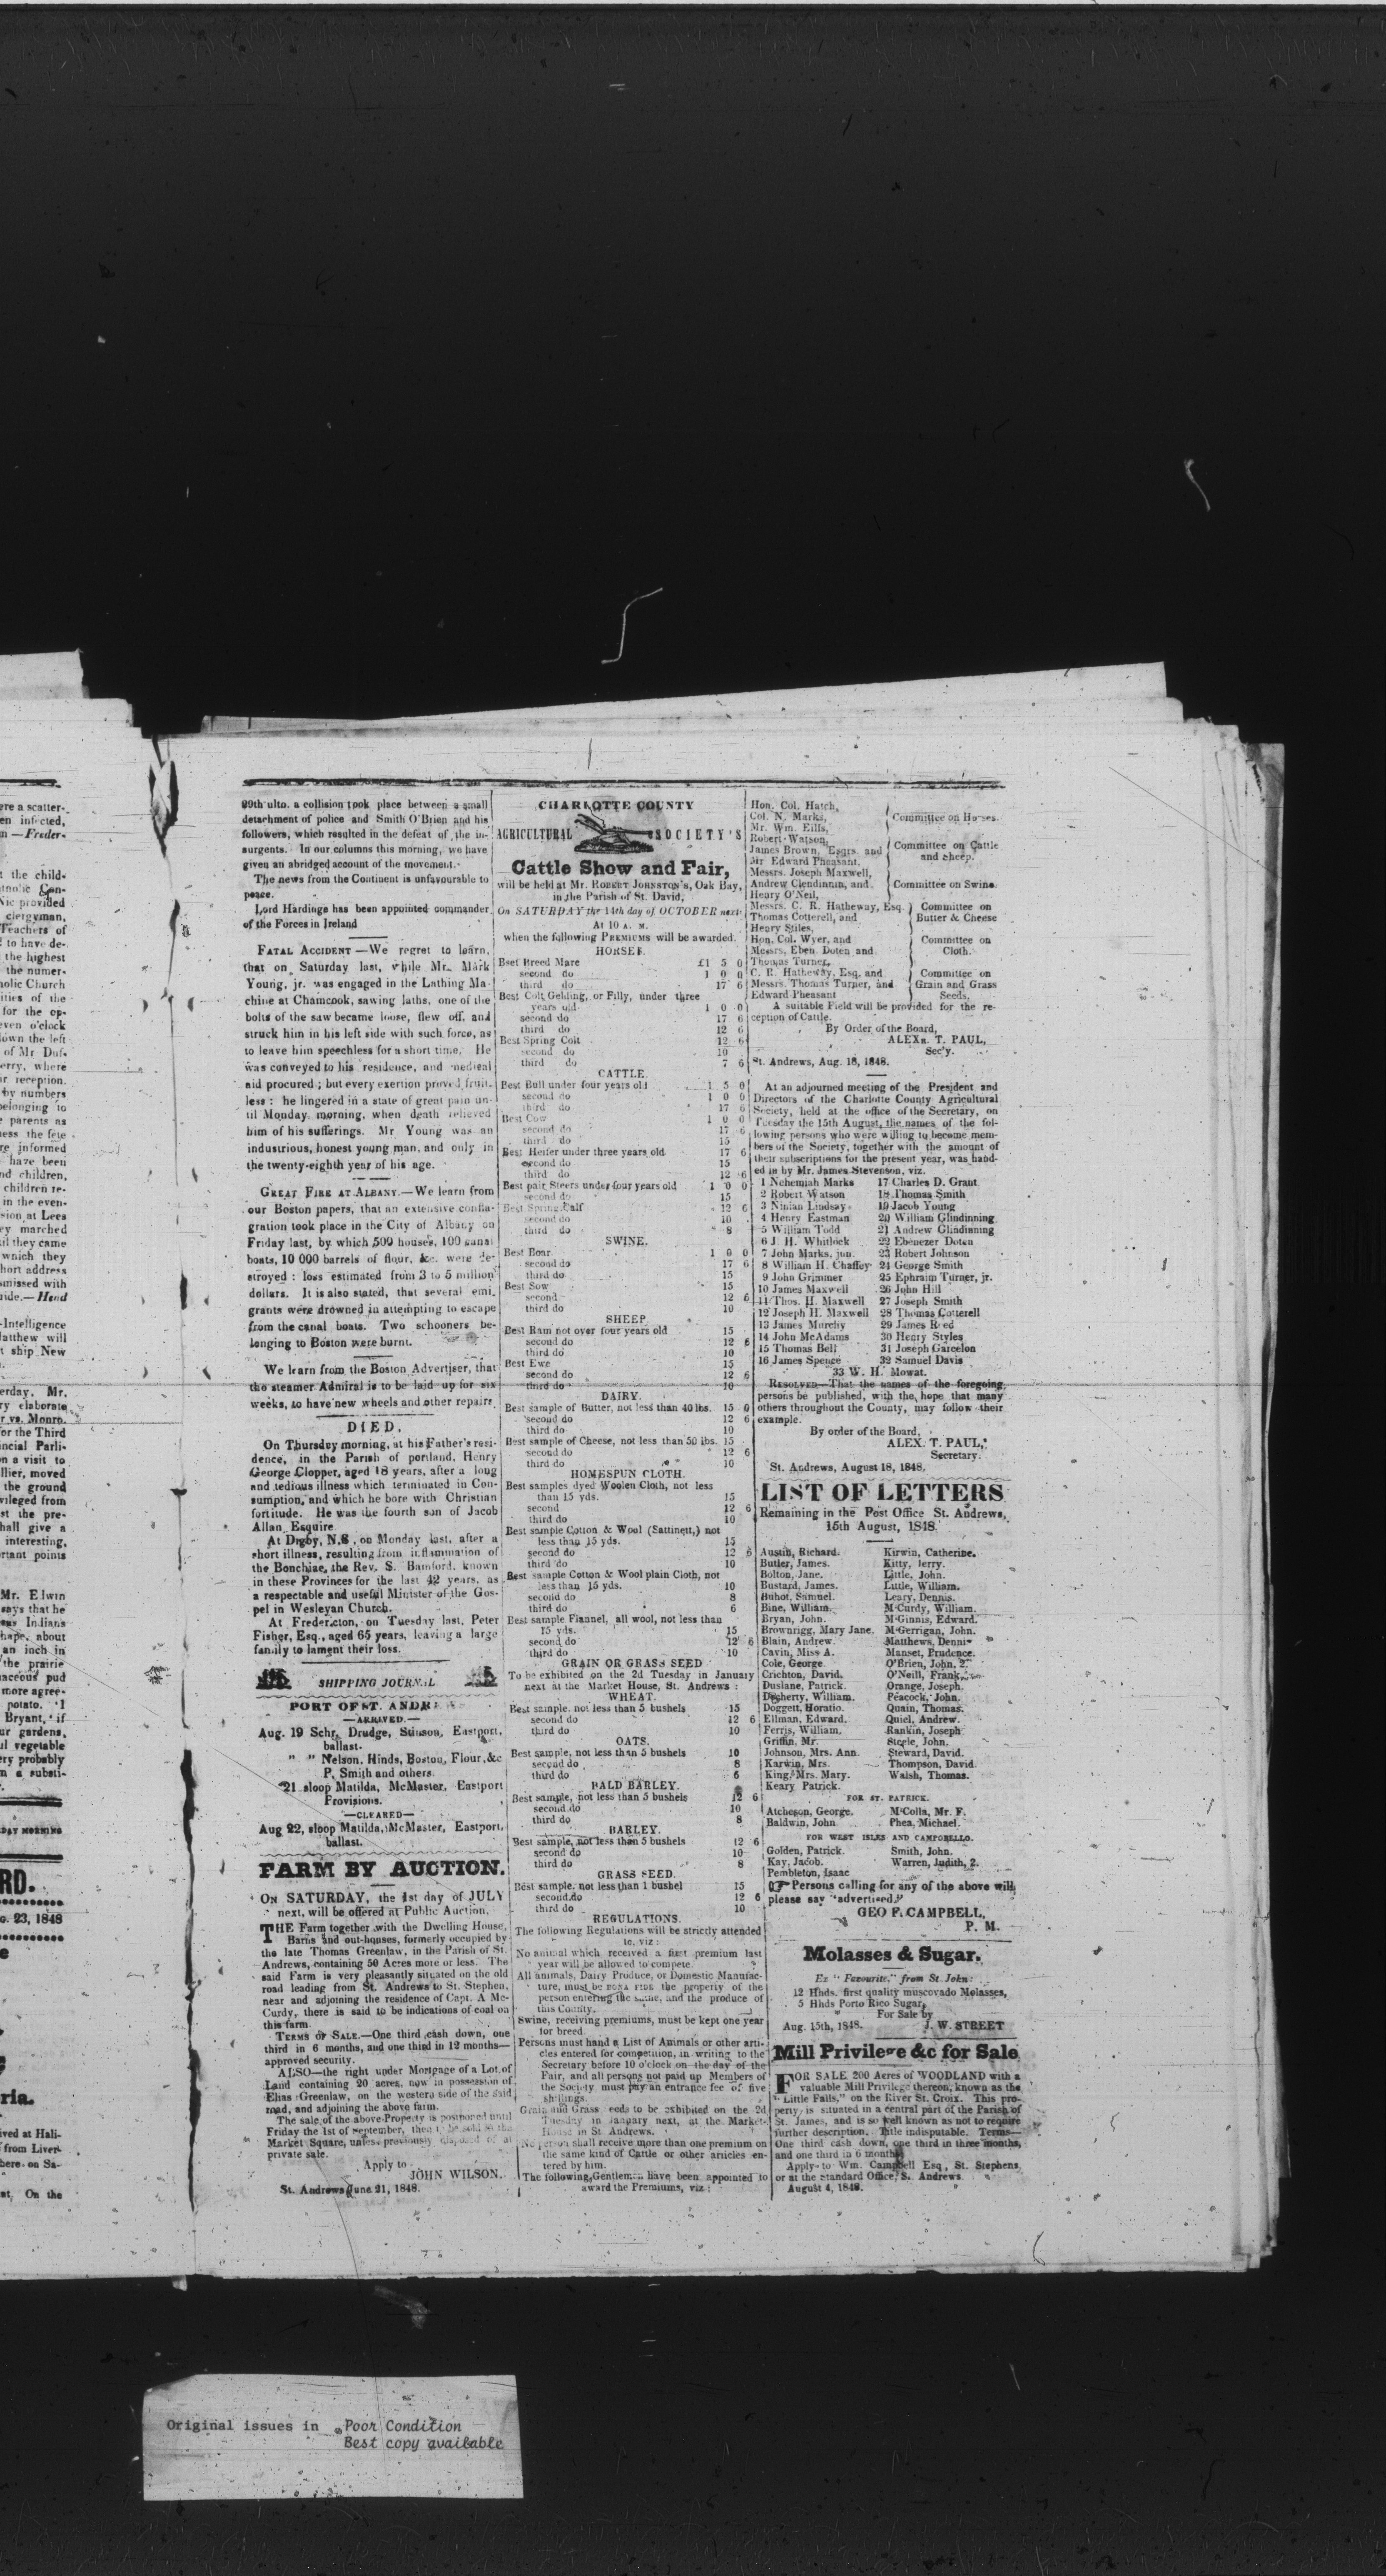 ere a scatter-
en infected,
n — Freder-
t the child-
tholic Con-
Nic provided
clergyman,
Teachers of
t to have de-
the highest
the numer-
nolic Church
ities of the
for the op-
even o'clock
lown the left
of Mr Duf-
erry, where
ir reception.
by numbers
belonging to
e parents as
ness the fete
re informed
have been
nd children,
children re-
in the even-
sion at Lees
ey marched
til they came
which they
hort address
smissed with
ide.— Head
-Intelligence
Matthew will
t ship New
erday, Mr.
ry elaborate
r vs. Monro.
for the Third
incial Parli-
on a visit to
llier, moved
the ground
vileged from
st the pre-
hall give a
interesting,
rtant points
Mr. Elwin
says that he
Indians
hape, about
an inch in
the prairie
aceous pud
more agree-
potato. 'I
Bryant, 'if
ur gardens,
ul vegetable
ery probably
n a substi-
DAY MORNING
RD.
G. 23, 1848
ria.
ived at Hali-
from Liver-
here on Sa-
at, On the
29th ulto. a collision took place between a small
detachment of police and Smith O'Brien and his
followers, which resulted in the defeat of the in-
surgents. In our columns this morning, we have
given an abridged account of the movement.
The news from the Continent is unfavourable to
peace.
Lord Hardinge has been appointed commander
of the Forces in Ireland
FATAL ACCIDENT —We regret to learn,
that on Saturday last, while Mr. Mark
Young, jr. was engaged in the Lathing Ma-
chine at Chamcook, sawing laths, one of the
bolts of the saw became loose, flew off, and
struck him in his left side with such force, as
to leave him speechless for a short time. He
was conveyed to his residence, and medical
aid procured ; but every exertion proved fruit-
less : he lingered in a state of great pain un-
til Monday morning, when death relieved
him of his sufferings. Mr Young was an
industrious, honest young man, and only in
the twenty-eighth year of his age.
GREAT FIRE AT ALBANY.—We learn from
our Boston papers, that an extensive confla-
gration took place in the City of Albany on
Friday last, by which 500 houses, 100 canal
boats, 10 000 barrels of flour, &c. were de-
stroyed : loss estimated from 3 to 5 million
dollars. It is also stated, that several emi-
grants were drowned in attempting to escape
from the canal boats. Two schooners be-
longing to Boston were burnt.
We learn from the Boston Advertiser, that
the steamer Admiral is to be laid up for six
weeks, to have new wheels and other repairs.
DIED,
On Thursday morning, at his Father's resi-
dence, in the Parish of portland, Henry
George Clopper, aged 18 years, after a long
and tedious illness which terminated in Con-
sumption, and which he bore with Christian
fortitude. He was the fourth son of Jacob
Allan Esquire
At Digby, N,S , on Monday last, after a
short illness, resulting from inflammation of
the Bonchiae, the Rev. S. Bamford, known
in these Provinces for the last 42 years, as
a respectable and useful Minister of the Gos-
pel in Wesleyan Church.
At Fredericton, on Tuesday last, Peter
Fisher, Esq., aged 65 years, leaving a large
family to lament their loss.
SHIPPING JOURNAL
PORT OF ST. ANDR
—ARRIVED.—
Aug. 19 Schr. Drudge, Stinson, Eastport,
ballast.
" " Nelson, Hinds, Boston, Flour, &c
P. Smith and others.
21 sloop Matilda, McMaster, Eastport
Provisions.
—CLEARED—
Aug 22, sloop Matilda, McMaster, Eastport,
ballast.
FARM BY AUCTION.
ON SATURDAY, the 1st day of JULY
next, will be offered at Public Auction,
THE Farm together with the Dwelling House,
Barns and out-houses, formerly occupied by
the late Thomas Greenlaw, in the Parish of St.
Andrews, containing 50 Acres more or less. The
said Farm is very pleasantly situated on the old
road leading from St. Andrews to St. Stephen,
near and adjoining the residence of Capt. A Mc-
Curdy, there is said to be indications of coal on
this farm.
TERMS OF SALE.—One third cash down, one
third in 6 months, and one third in 12 months—
approved security.
ALSO—the right under Mortgage of a Lot of
Land containing 20 acres, now in possession of
Elias Greenlaw, on the western side of the said
road, and adjoining the above farm.
The sale of the above Property is postponed until
Friday the 1st of September, then to be sold in the
Market Square, unless previously disposed of at
private sale.
Apply to
JOHN WILSON.
St. Andrews June 21, 1848.
CHARLOTTE COUNTY
AGRICULTURAL SOCIETY'S
Cattle Show and Fair,
will be held at Mr. ROBERT JOHNSTON'S, Oak Bay,
in the Parish of St. David,
On SATURDAY the 14th day of OCTOBER next
At 10 A. M.
when the following PREMIUMS will be awarded.
HORSES.
Bset Breed Mare £1 5 0
second do 1 0 0
third do 17 6
Best Colt, Gelding, or Filly, under three
years old 1 0 0
second do 17 6
third do 12 6
Best Spring Colt 12 6
second do 10
third do 7 6
CATTLE.
Best Bull under four years old 1 5 0
second do 1 0 0
third do 17 6
Best Cow 1 0 0
second do 17 6
third do 15
Best Heifer under three years old 17 6
second do 15
third do 12 6
Best pair Steers under four years old 1 0 0
second do 15
Best Spring Calf 12 6
second do 10
third do 8
SWINE.
Best Boar 1 0 0
second do 17 6
third do 15
Best Sow 15
second 12 6
third do 10
SHEEP
Best Ram not over four years old 15
second do 12 6
third do 10
Best Ewe 15
second do 12 6
third do 10
DAIRY.
Best sample of Butter, not less than 40 lbs. 15 0
second do 12 6
third do 10
Best sample of Cheese, not less than 50 lbs. 15
second do 12 6
third do 10
HOMESPUN CLOTH.
Best samples dyed Woolen Cloth, not less
than 15 yds. 15
second 12 6
third do 10
Best sample Cotton & Wool (Sattinett,) not
less than 15 yds. 15
second do 12 6
third do 10
Best sample Cotton & Wool plain Cloth, not
less than 15 yds. 10
second do 8
third do 6
Best sample Flannel, all wool, not less than
15 yds. 15
second do 12 6
third do 10
GRAIN OR GRASS SEED
To be exhibited on the 2d Tuesday in January
next at the Market House, St. Andrews :
WHEAT.
Best sample, not less than 5 bushels 15
second do 12 6
third do 10
OATS.
Best sample, not less than 5 bushels 10
second do 8
third do 6
BALD BARLEY.
Best sample, not less than 5 bushels 12 6
second do 10
third do 8
BARLEY.
Best sample, not less than 5 bushels 12 6
second do 10
third do 8
GRASS SEED.
Best sample, not less than 1 bushel 15
second do 12 6
third do 10
REGULATIONS.
The following Regulations will be strictly attended
to, viz :
No animal which received a first premium last
year will be allowed to compete.
All animals, Dairy Produce, or Domestic Manufac-
ture, must be BONA FIDE the property of the
person entering the same, and the produce of
this County.
Swine, receiving premiums, must be kept one year
for breed.
Persons must hand a List of Animals or other arti-
cles entered for competition, in writing to the
Secretary before 10 o'clock on the day of the
Fair, and all persons not paid up Members of
the Society must pay an entrance fee of five
shillings.
Grain and Grass eeds to be exhibited on the 2d
Tuesday in January next, at the Market
House in St Andrews.
No person shall receive more than one premium on
the same kind of Cattle or other articles en-
tered by him.
The following Gentlemen have been appointed to
award the Premiums, viz :
Hon. Col. Hatch,
Col. N. Marks,
Mr. Wm. Eills,
Committee on Horses.
Robert Watson,
James Brown, Esqrs. and
Mr Edward Pheasant,
Committee on Cattle
and Sheep.
Messrs. Joseph Maxwell,
Andrew Clendinnin, and
Henry O'Neil,
Committee on Swine.
Messrs. C. R. Hatheway, Esq.
Thomas Cotterell, and
Henry Stiles,
Committee on
Butter & Cheese
Hon. Col. Wyer, and
Messrs. Eben. Doten and
Thomas Turner,
Committee on
Cloth.
C. R. Hatheway, Esq. and
Messrs. Thomas Turner, and
Edward Pheasant
Committee on
Grain and Grass
Seeds.
A suitable Field will be provided for the re-
ception of Cattle.
By Order of the Board,
ALEXR. T. PAUL,
Sec'y.
St. Andrews, Aug. 18, 1848.
At an adjourned meeting of the President and
Directors of the Charlotte County Agricultural
Society, held at the office of the Secretary, on
Tuesday the 15th August, the names of the fol-
lowing persons who were willing to become mem-
bers of the Society, together with the amount of
their subscriptions for the present year, was hand-
ed in by Mr. James Stevenson, viz.
1 Nehemiah Marks 17 Charles D. Grant
2 Robert Watson 18 Thomas Smith
3 Ninian Lindsay 19 Jacob Young
4 Henry Eastman 20 William Glindinning
5 William Todd 21 Andrew Glindinning
6 J. H. Whitlock 22 Ebenezer Doten
7 John Marks, jun. 23 Robert Johnson
8 William H. Chaffey 24 George Smith
9 John Grimmer 25 Ephraim Turner, jr.
10 James Maxwell 26 John Hill
11 Thos. H. Maxwell 27 Joseph Smith
12 Joseph H. Maxwell 28 Thomas Cotterell
13 James Murchy 29 James Reed
14 John McAdams 30 Henry Styles
15 Thomas Bell 31 Joseph Garcelon
16 James Spence 32 Samuel Davis
33 W. H. Mowat.
RESOLVED—That the names of the foregoing
persons be published, with the hope that many
others throughout the County, may follow their
example.
By order of the Board,
ALEX. T. PAUL,
Secretary.
St. Andrews, August 18, 1848.
LIST OF LETTERS
Remaining in the Post Office St. Andrews,
15th August, 1848.
Austin, Richard. Kirwin, Catherine.
Butler, James. Kitty, Jerry.
Bolton, Jane. Little, John.
Bustard, James. Little, William.
Buhot, Samuel. Leary, Dennis.
Bine, William. M'Curdy, William.
Bryan, John. M'Ginnis, Edward.
Brownrigg, Mary Jane. M'Gerrigan, John.
Blain, Andrew. Matthews, Dennis
Cavin, Miss A. Manset, Prudence.
Cole, George. O'Brien, John, 2.
Crichton, David. O'Neill, Frank.
Duslane, Patrick. Orange, Joseph.
Docherty, William. Peacock, John.
Doggett, Horatio. Quain, Thomas.
Ellman, Edward. Quiel, Andrew.
Ferris, William. Rankin, Joseph
Griffin, Mr. Steele, John.
Johnson, Mrs. Ann. Steward, David.
Karwin, Mrs. Thompson, David.
King, Mrs. Mary. Walsh, Thomas.
Keary Patrick.
FOR ST. PATRICK.
Atcheson, George. M'Colla, Mr. F.
Baldwin, John Phea, Michael.
FOR WEST ISLES AND CAMPOBELLO.
Golden, Patrick. Smith, John.
Kay, Jacob. Warren, Judith, 2.
Pembleton, Isaac
☞ Persons calling for any of the above will
please say "advertised."
GEO F. CAMPBELL,
P. M.
Molasses & Sugar.
Ex "Favourite," from St. John:
12 Hhds. first quality muscovado Molasses,
5 Hhds Porto Rico Sugar,
For Sale by
Aug. 15th, 1848. J. W. STREET
Mill Privilege &c for Sale
FOR SALE 200 Acres of WOODLAND with a
valuable Mill Privilege thereon, known as the
"Little Falls," on the River St. Croix. This pro-
perty is situated in a central part of the Parish of
St. James, and is so well known as not to require
further description. Title indisputable. Terms—
One third cash down, one third in three months,
and one third in 6 months
Apply to Wm. Campbell Esq, St. Stephens,
or at the Standard Office, S. Andrews.
August 4, 1848.
Original issues in Poor Condition
Best copy available